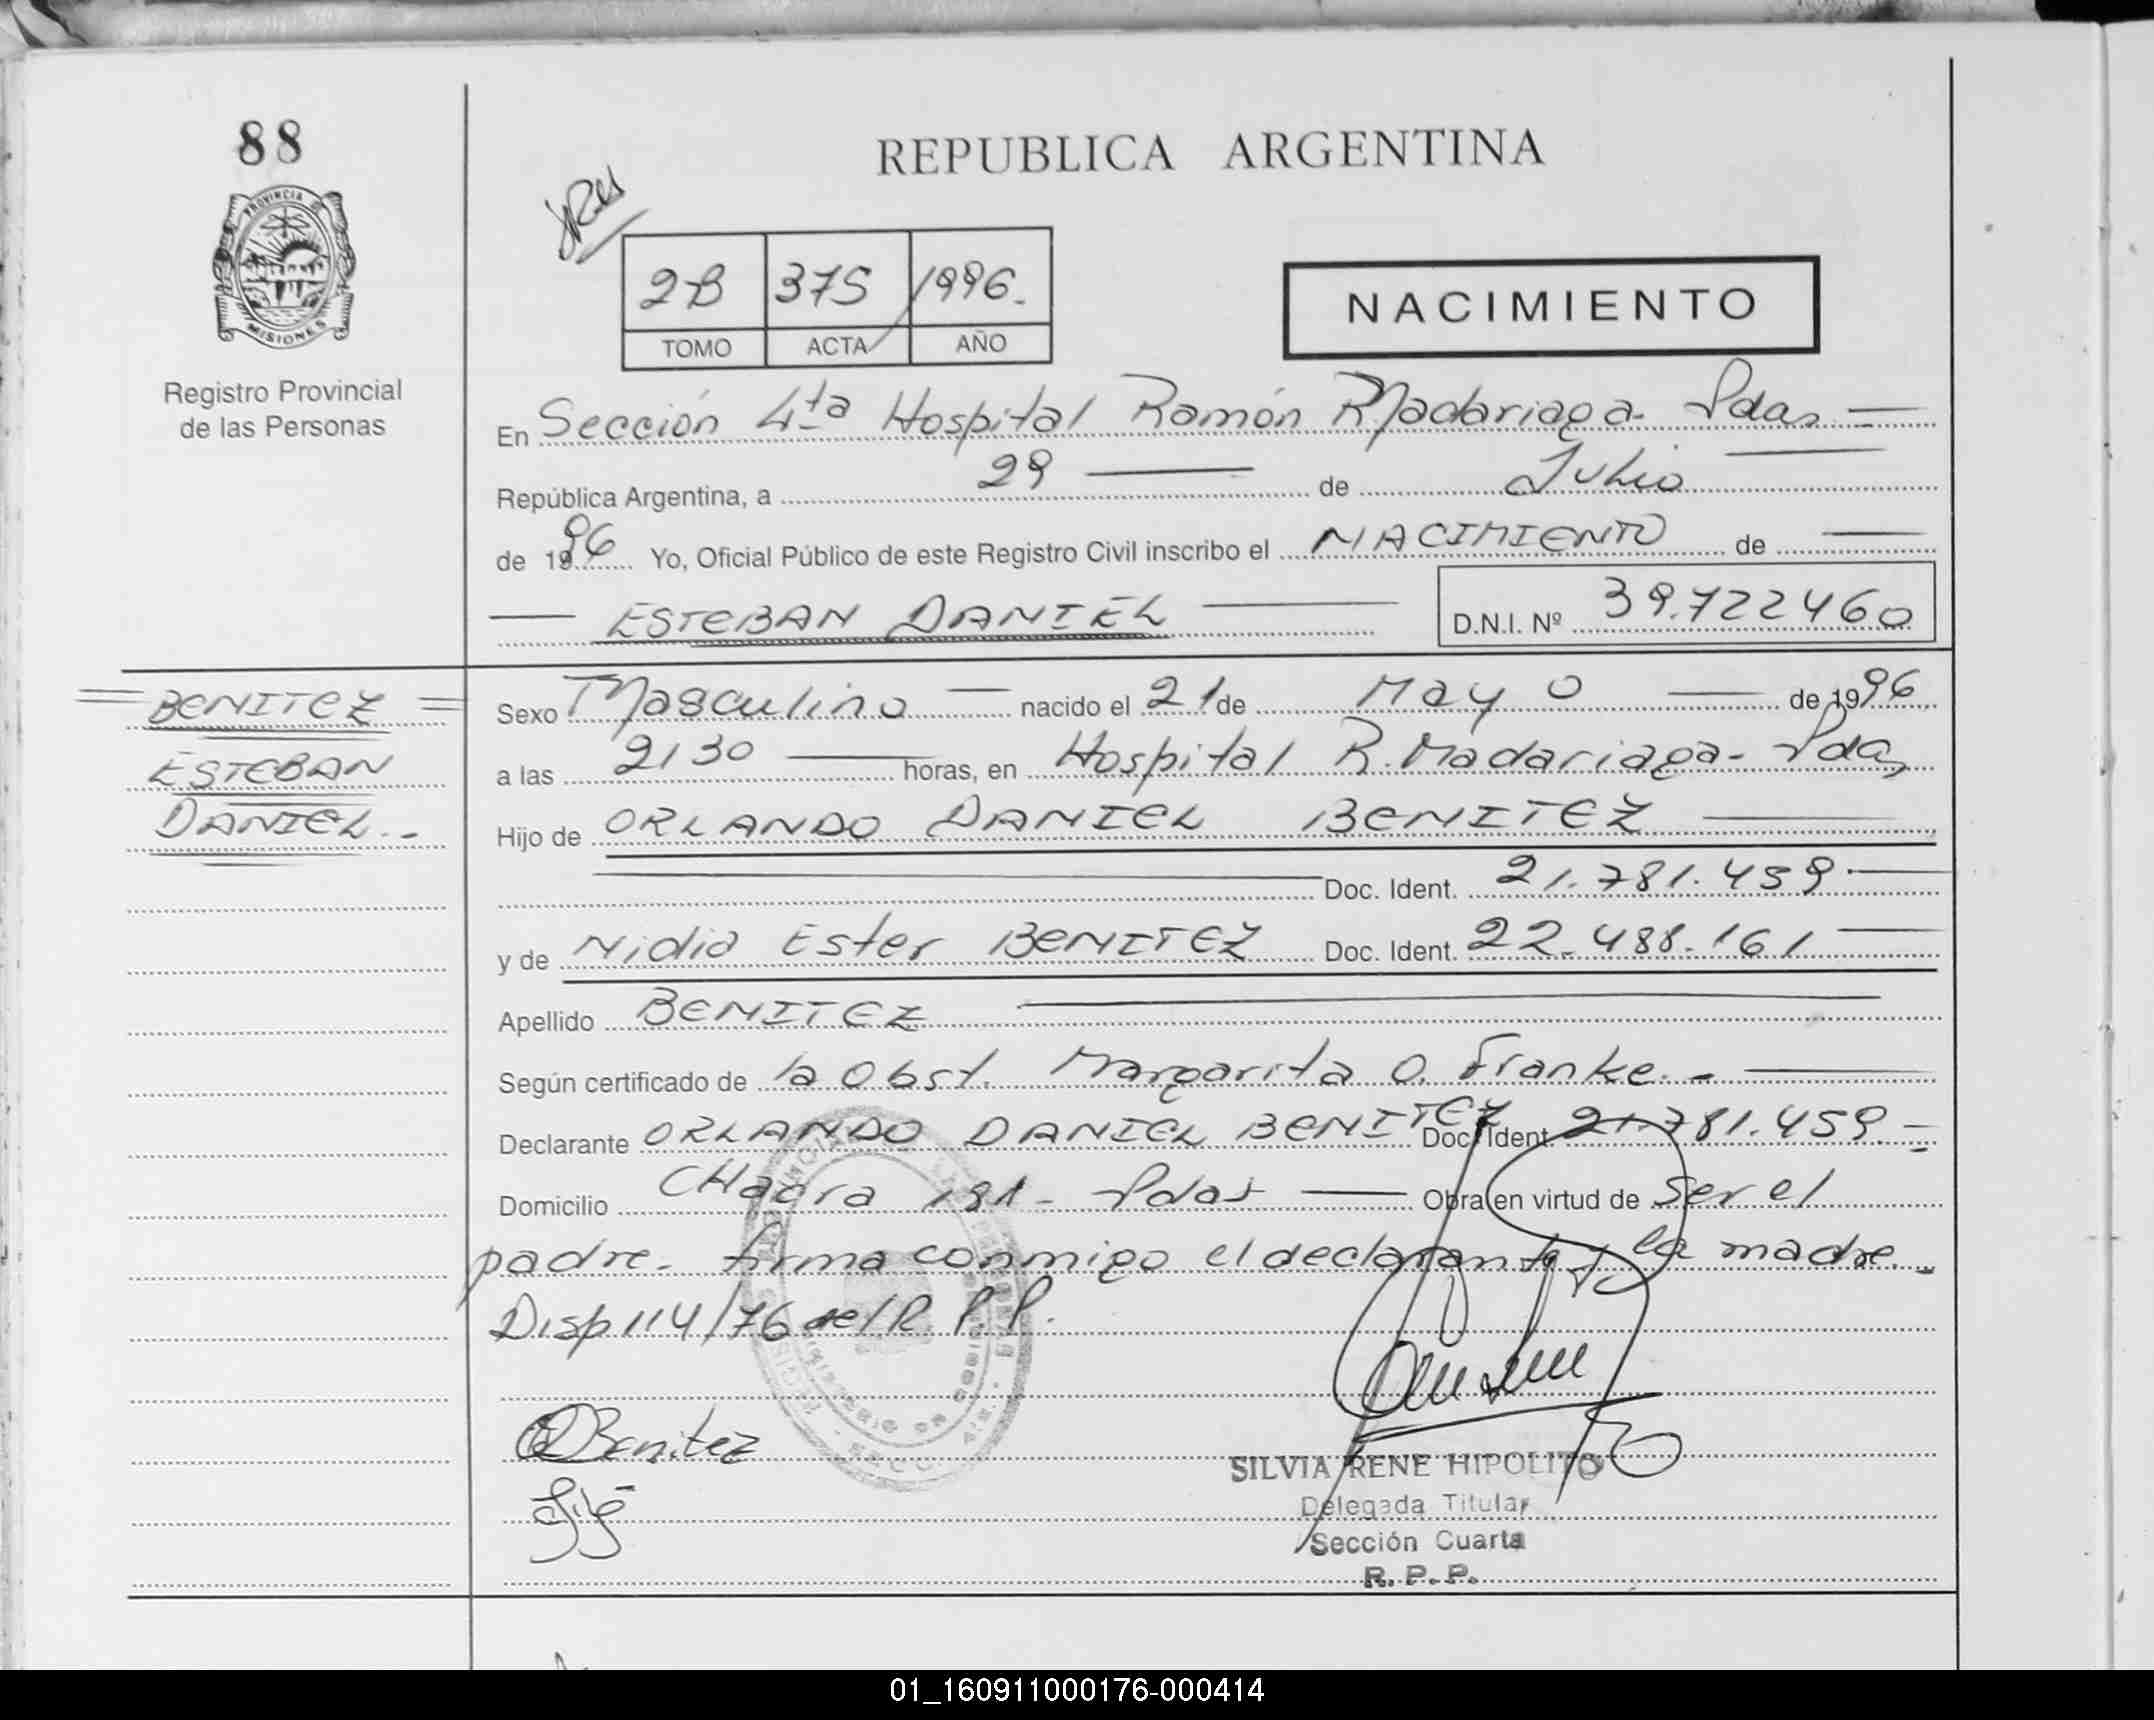 88
REPUBLICA ARGENTINA
PROVINCIA DE
MISIONES
Registro Provincial
de las Personas
2B 375 1996.
TOMO ACTA AÑO
NACIMIENTO
En Sección 4ta Hospital Ramón Madariaga - Pdas
República Argentina, a 29 de Julio
de 1996 Yo, Oficial Público de este Registro Civil inscribo el NACIMIENTO de
ESTEBAN DANIEL D.N.I. Nº 39.722460
BENITEZ
ESTEBAN
DANIEL.-
Sexo Masculino nacido el 21 de Mayo de 1996
a las 2130 horas, en Hospital R. Madariaga - Pdas
Hijo de ORLANDO DANIEL BENITEZ
Doc. Ident. 21.781.459
y de Nidia Ester BENITEZ Doc. Ident. 22.488.161
Apellido BENITEZ
Según certificado de la Obst. Margarita O. Franke.-
Declarante ORLANDO DANIEL BENITEZ Doc. Ident. 21.781.459.-
Domicilio CHacra 181 - Pdas Obra en virtud de Ser el
padre. firma conmigo el declarante y la madre.-
Disp 114/76 del R.P.P.
Benitez
SILVIA IRENE HIPOLITO
Delegada Titular
Sección Cuarta
R. P. P.
01_160911000176-000414